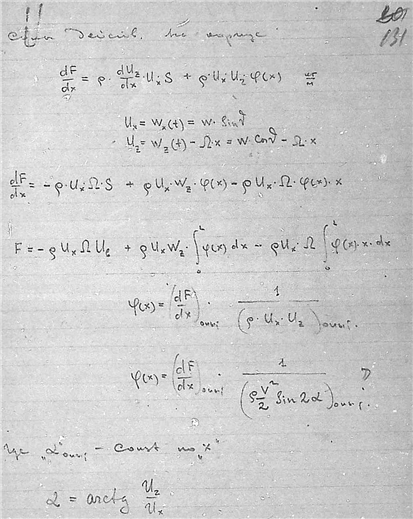 131
сил действ. на корпус
dF/dx = ρ · dU_z/dx · U_x S + ρ · U_x U_z φ(x)
U_x = W_x(t) = W · Sin ϑ
U_z = W_z(t) − Ω · x = W Cos ϑ − Ω · x
dF/dx = −ρ · U_x Ω · S + ρ U_x · W_z · φ(x) − ρ U_x · Ω · φ(x) · x
F = −ρ U_x Ω U_в + ρ U_x W_z · ∫₀ᴸ φ(x) dx − ρ U_x · Ω ∫₀ᴸ φ(x) · x · dx
φ(x) = (dF/dx) · 1/(ρ · U_x · U_z)
φ(x) = (dF/dx) · 1/(ρ V²/2 Sin 2α)
где „α" − const по „x"
α = arctg U_z/U_x